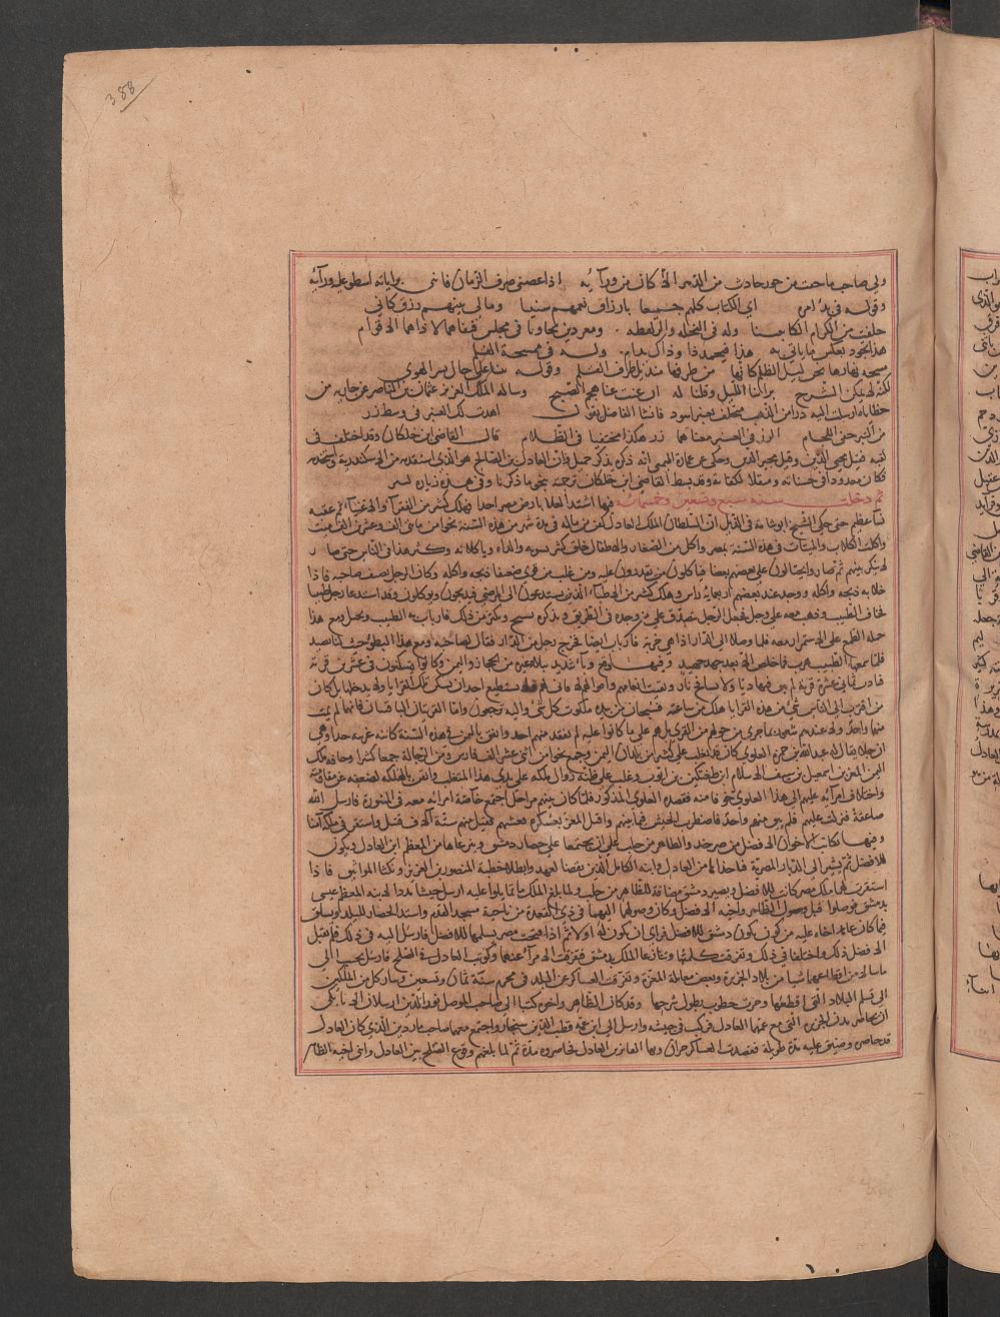 388
ولي صاحب ما حت من جور حادث من الدهر الا كان من ورآيه اذا عصني صرف الزمان فانني براياته اسطو عليه ورآيه
وقوله في بدء امره اي الكتاب كلهم جميعا بارزاق تعمهم سنينا ومالي بينهم رزق كاني
خلقت من الكرام الكاتبينا وله في النحلة والزلقطه ومغردين تجاوبا في مجلس فنفاهما لاذاهما الاقوام
هذا يجود بعكس ما ياتي به هذا فيحمد ذا وذاك يلام وله في مسحة القلم
ممسحة نهارها تجن ليل الظلم كانها من طرفها منديل طرف القلم وقوله بتنا على حال يسر الهوى
لكنه لا يمكن الشرح بوابنا الليل وقلنا له ان غبت عنا هجم الصبح وساله الملك العزيز عثمان بن الناصر عن جارية من
حظاياه ارسلت اليه زرا من الذهب مغلف بعنبر اسود فانشا الفاضل يقول اهدت لك العنبر في وسطه زر
من التبر خفي اللحام الزر في العنبر معناهما زر هكذا مختفيا في الظلام قال القاضي ابن خلكان وقد اختلف في
لقبه فقيل محيي الدين وقيل مجير الدين وحكى عن عمارة اليمني انه ذكره بذكر جميل وان العادل بن الصالح هو الذي استقدمه من الاسكندرية واستخدمه
فكان معدودا في حسناته وقد بسط القاضي ابن خلكان ترجمته بنحو ما ذكرنا وفي هذه زيادة
ثم دخلت سنة سبع وتسعين وخمسمائة فيها اشتد الغلا بارض مصر جدا وهلك كثير من الفقرآ والاغنيآ ثم عقبه
فنآ عظيم حتى حكى الشيخ ابو شامة في الذيل ان السلطان الملك العادل كفن من ماله في مدة شهر من هذه السنة نحوا من مائتي الف وعشرين الف ميت
واكلت الكلاب والميتات في هذه السنة بمصر واكل من الصغار والاطفال خلق كثير يشويه والداه وياكلانه وكثر هذا في الناس حتى صار
لا ينكر بينهم ثم صاروا يحتالون على بعضهم بعضا فياكلون من يقدرون عليه ومن غلب من قوي ضعيفا ذبحه واكله وكان الرجل يضيف صاحبه فاذا
خلا به ذبحه واكله ووجد عند بعضهم اربعمائة راس وهلك كثير من الاطبآء الذين يستدعون الى المرضى فيذبحون ويوكلون وقد استدعا رجل طبيبا
فخاف الطبيب وذهب معه على وجل فجعل الرجل يتصدق على من وجده في الطريق ويذكر ويسبح ويكثر من ذلك فارتاب به الطبيب وتخيل ومع هذا
حمله الطمع على الاستمرار معه فلما وصلا الى الدار اذا هي خربة فارتاب ايضا فخرج رجل من الدار فقال لصاحبه ومع هذا البطو جيت لنا بصيد
فلما سمعها الطبيب هرب فما خلص الا بعد جهد جهيد وفيها وقع وبآء شديد ببلاد عنزة بين الحجاز واليمن وكانوا يسكنون في عشرين قرية
فبادت ثماني عشرة قرية لم يبق فيها ديار ولا نافخ نار وبقيت انعامهم واموالهم لا قاني لها ولا يستطيع احد ان يسكن تلك القرايا ولا يدخلها بل كان
من اقترب الى شي من هذه القرايا هلك من ساعته فسبحان من بيده ملكوت كل شي واليه ترجعون واما القريتان الباقيتان فانهما لم يمت
منها واحد ولا عندهم شعور بما جرى من حولهم من القرى بل هم على ما كانوا عليه لم يفقد منهم احد واتفق باليمن في هذه السنة كائنة غريبة جدا وهي
ان رجلا يقال له عبد الله بن حمزة العلوي كان قد تغلب على كثير من بلدان اليمن وجمع نحوا من اثني عشر الف فارس ومن الرجالة جمعا كثيرا وخافه ملك
اليمن المعز بن اسمعيل بن سيف الاسلام بن طغتكين بن ايوب وغلب على ظنه زوال ملكه على يدي هذا المتغلب وايقن بالهلكة لضعفه عن مقاومته
واختلاف امرآيه عليه الى هذا العلوي خوفا منه فقصده العلوي المذكور فلما كان بينهم مراحل اجتمع خاصة امرائه معه في المشورة فارسل الله
صاعقة فنزلت عليهم فلم يبق منهم واحد فاضطرب الجيش فيما بينهم واقبل المعز بعسكره فغشيهم فقتل منهم ستة آلاف قتيل واستقر في ملكه آمنا
وفيها تكاتب الاخوان الافضل من صرخد والظاهر من حلب على ان يجتمعا على حصار دمشق وينزعاها من المعظم ابن العادل ويكون
للافضل ثم يسيرا الى الديار المصرية فياخذاها من العادل وابنه الكامل الذين نقضا العهد وابطلا خطبة المنصور بن العزيز ونكثا المواثيق فاذا
استقرت لهما ملك مصر كانت للافضل ويصير دمشق مضافة للظاهر مع حلب ولما بلغ الملك ما تمالوا عليه ارسل جيشا مددا لابنه المعظم عيسى
بدمشق فوصلوا قبل وصول الظاهر واخيه الافضل وكان وصولهما اليها في ذي القعدة من ناحية مسجد القدم واشتد الحصار للبلد
فيما كان عاهد اخاه عليه من كون يكون دمشق للافضل فراى ان تكون له اولا ثم اذا فتحت مصر يسلمها للافضل فارسل اليه في ذلك فلم يقبل
الافضل ذلك واختلفا في ذلك وتفرقت كلمتهما وتنازعا الملك بدمشق فتفرقت الامرآء عنهما وكوتب العادل في الصلح فارسل يجيب الى
ما سالا من اقطاعهما شيا من بلاد الجزيرة وبعض معاملة المعرة وتفرقت العساكر عن البلد في محرم سنة ثمان وتسعين وسار كل من الملكين
الى تسلم البلاد التي اقطعها وجرت خطوب يطول شرحها وقد كان الظاهر واخوه كتبا الى صاحب الموصل نور الدين ارسلان الاتابكي
ان يحاصر مدن الجزيرة التي مع عمهما العادل فركب في جيشه وارسل الى ابن عمه قطب الدين سنجار واجتمع معهما صاحب ماردين الذي كان العادل
قد حاصره وضيق عليه مدة طويلة فقصدت العساكر حران وبها الفايز بن العادل فحاصروه مدة ثم لما بلغهم وقوع الصلح بين العادل وابني اخيه الظاهر